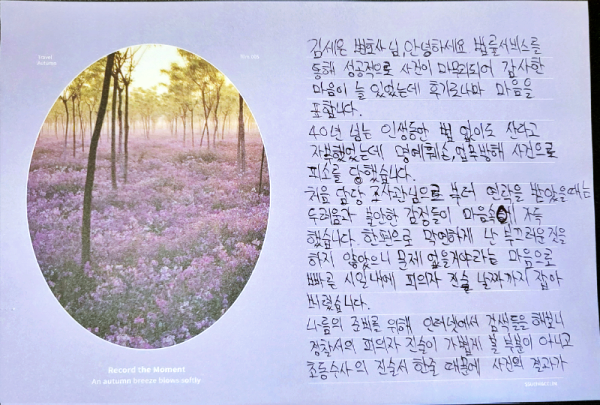 Travel
Autumn
김세은 변호사님, 안녕하세요 법률서비스를
통해 성공적으로 사건이 마무리되어 감사한
마음이 늘 있었는데 후기로나마 마음을
표합니다.
40년 넘는 인생동안 법 없이도 산다고
자부했었는데 명예훼손, 업무방해 사건으로
피소를 당했습니다.
처음 담당 조사관님으로 부터 연락을 받았을때는
두려움과 불안한 감정들이 마음속에 가득
했습니다. 한편으로 막연하게 난 부끄러운짓을
하지 않았으니 문제 없을거야라는 마음으로
빠른 시일내에 피의자 진술 날짜까지 잡아
버렸습니다.
나름의 준비를 위해 인터넷에서 검색들을 해보니
경찰서의 피의자 진술이 가볍게 볼 부분이 아니고
초동수사의 진술서 한줄 때문에 사건의 결과가
Record the Moment
An autumn breeze blows softly